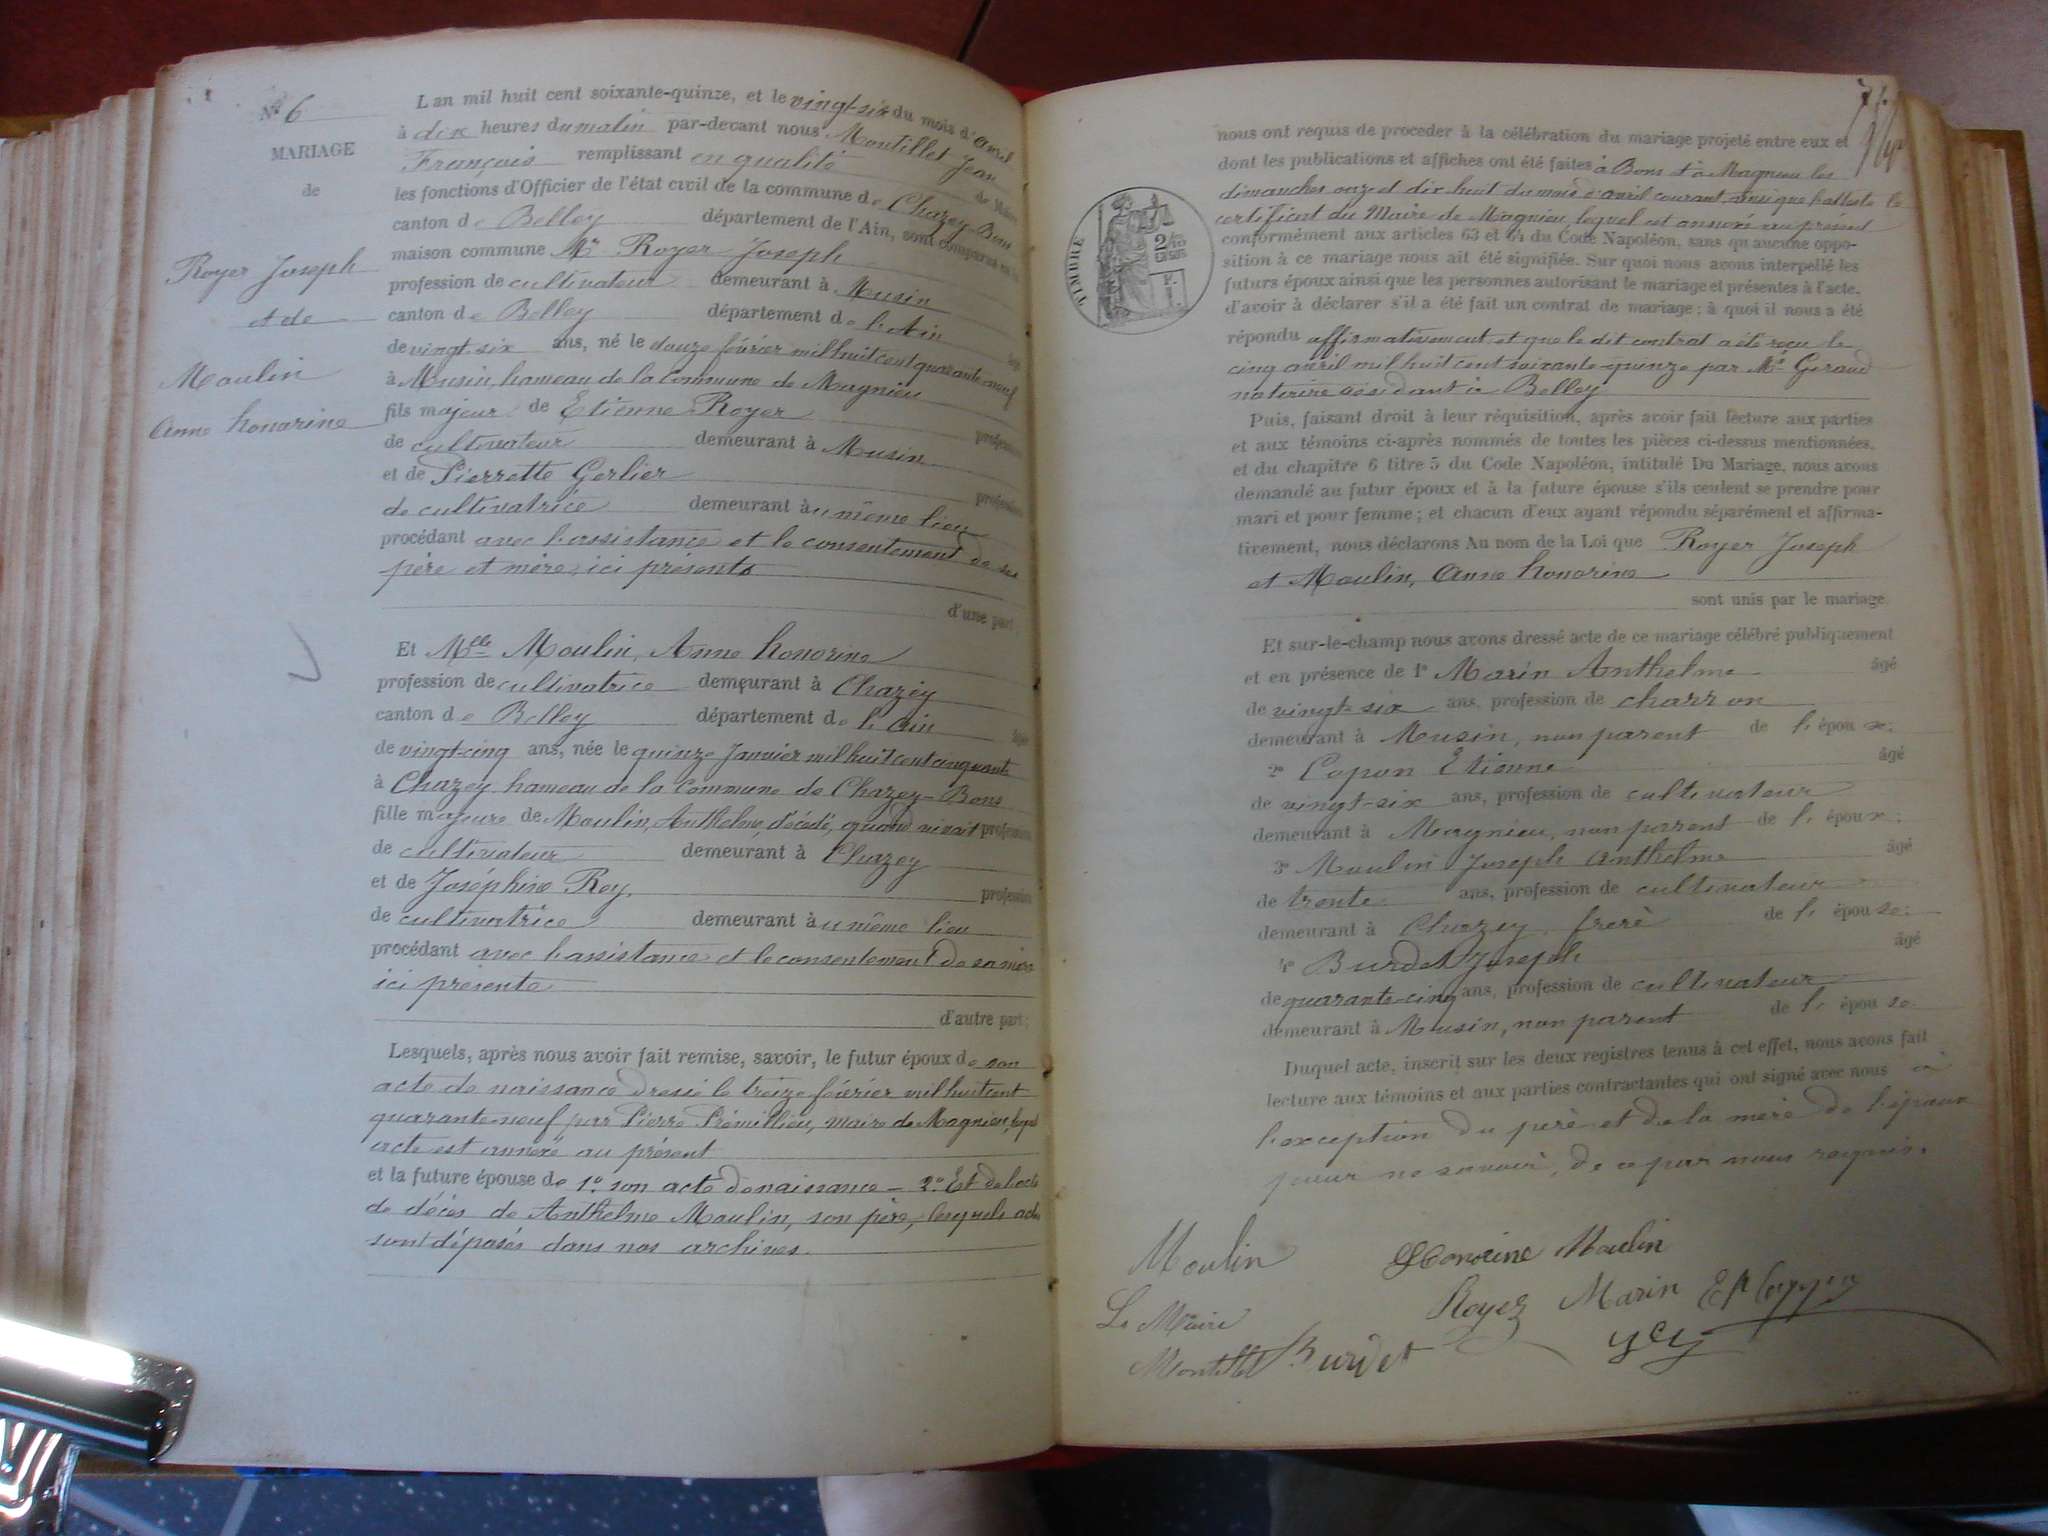 N° 6
MARIAGE
de
Royer Joseph
et de
Moulin
Anne honorine
L'an mil huit cent soixante-quinze, et le vingt-six du mois d'avril
à dix heures du matin par-devant nous Montillet Jean
François remplissant en qualité de Maire
les fonctions d'Officier de l'état civil de la commune de Chazey-Bons
canton de Belley département de l'Ain, sont comparus en la
maison commune Mr Royer Joseph
profession de cultivateur demeurant à Musin
canton de Belley département de l'Ain âgé
de vingt-six ans, né le douze février mil huit cent quarante-neuf
à Musin, hameau de la commune de Magnieu
fils majeur de Etienne Royer profession
de cultivateur demeurant à Musin
et de Pierrette Gerlier profession
de cultivatrice demeurant au même lieu
procédant avec l'assistance et le consentement de ses
père et mère, ici présents
d'une part;
Et Mlle Moulin, Anne honorine
profession de cultivatrice demeurant à Chazey
canton de Belley département de l'ain âgée
de vingt-cinq ans, née le quinze Janvier mil huit cent cinquante
à Chazey hameau de la Commune de Chazey-Bons
fille majeure de Moulin, Anthelme, décédé, quand vivait profession
de cultivateur demeurant à Chazey
et de Joséphine Rey, profession
de cultivatrice demeurant au même lieu
procédant avec l'assistance et le consentement de sa mère
ici présente
d'autre part;
Lesquels, après nous avoir fait remise, savoir, le futur époux de son
acte de naissance dressé le treize février mil huit cent
quarante-neuf par Pierre Prémillieu, maire de Magnieu, lequel
acte est annexé au présent
et la future épouse de 1° son acte de naissance – 2° Et de l'acte
de décès de Anthelme Moulin, son père, lesquels actes
sont déposés dans nos archives.
nous ont requis de proceder à la célébration du mariage projeté entre eux et
dont les publications et affiches ont été faites à Bons et à Magnieu les
dimanches onze et dix huit du mois d'avril courant, ainsi que l'atteste le
certificat du Maire de Magnieu, lequel est annexé au présent
TIMBRE
conformément aux articles 63 et 64 du Code Napoléon, sans qu'aucune oppo-
sition à ce mariage nous ait été signifiée. Sur quoi nous avons interpellé les
futurs époux ainsi que les personnes autorisant le mariage et présentes à l'acte,
d'avoir à déclarer s'il a été fait un contrat de mariage; à quoi il nous a été
répondu affirmativement et que le dit contrat a été reçu le
cinq avril mil huit cent soixante-quinze par Me Geraud
notaire résidant à Belley
Puis, faisant droit à leur réquisition, après avoir fait lecture aux parties
et aux témoins ci-après nommés de toutes les pièces ci-dessus mentionnées,
et du chapitre 6 titre 5 du Code Napoléon, intitulé Du Mariage, nous avons
demandé au futur époux et à la future épouse s'ils veulent se prendre pour
mari et pour femme; et chacun d'eux ayant répondu séparément et affirma-
tivement, nous déclarons Au nom de la Loi que Royer Joseph
et Moulin, Anne honorine
sont unis par le mariage.
Et sur-le-champ nous avons dressé acte de ce mariage célébré publiquement
et en présence de 1° Marin Anthelme âgé
de vingt-six ans, profession de charron
demeurant à Musin, non parent de l'époux;
2° Copon Etienne âgé
de vingt-six ans, profession de cultivateur
demeurant à Magnieu, non parent de l'époux;
3° Moulin Joseph Anthelme âgé
de trente ans, profession de cultivateur
demeurant à Chazey, frerè de l'épouse;
4° Burdet Joseph âgé
de quarante-cinq ans, profession de cultivateur
demeurant à Musin, non parent de l'épouse
Duquel acte, inscrit sur les deux registres tenus à cet effet, nous avons fait
lecture aux témoins et aux parties contractantes qui ont signé avec nous à
l'exception du père et de la mère de l'époux
pour ne savoir, de ce par nous requis.
Moulin Honorine Moulin
Royer Marin
Le Maire
Montillet Burdet